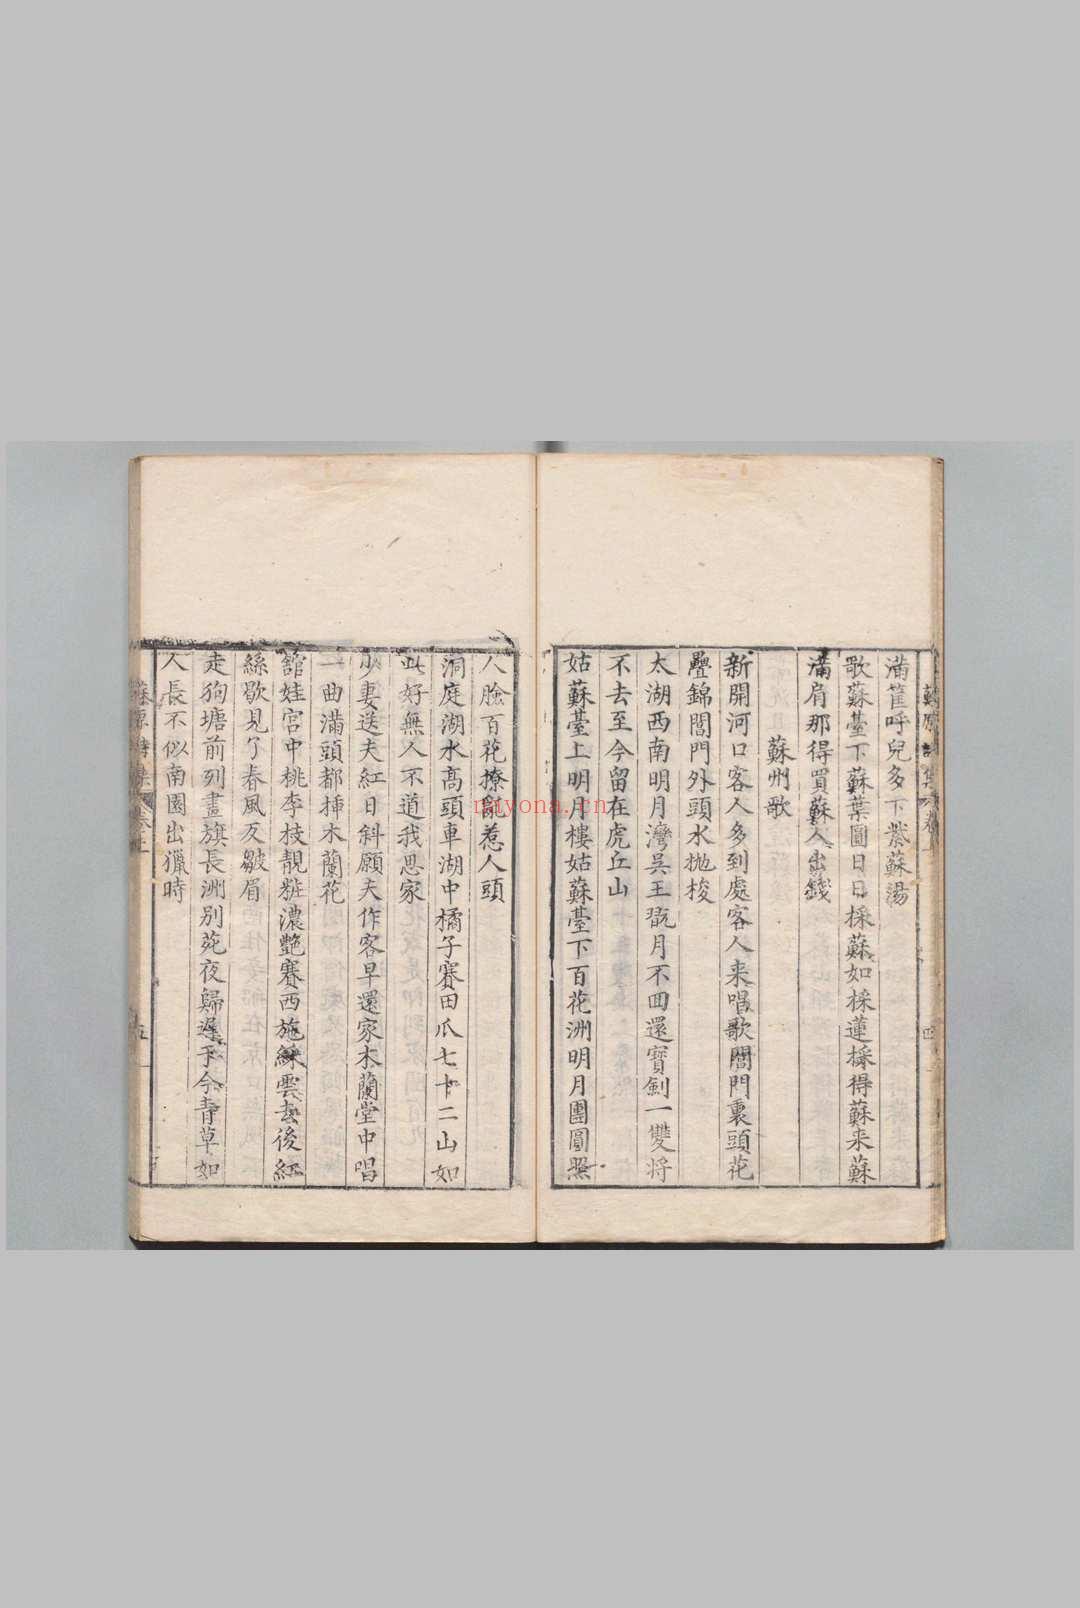 滿筐呼兒多下紫蘇湯
歌蘇臺下蘇葉圓日日採蘇如採蓮採得蘇来蘇
滿肩那得買蘇人出錢
蘇州歌
新開河口客人多到處客人来唱歌閶門裏頭花
疊錦閶門外頭水抛梭
太湖西南明月灣吳王翫月不回還寳劍一雙将
不去至今留在虎丘山
姑蘇臺上明月樓姑蘇臺下百花洲明月團圓照
人臉百花撩亂惹人頭
洞庭湖水高頭車湖中橘子賽田瓜七十二山如
此好無人不道我思家
少妻送夫紅日斜願夫作客早還家木蘭堂中唱
一曲滿頭都揷木蘭花
舘娃宮中桃李枝靚粧濃艶賽西施綵雲去後紅
絲歇見了春風反皺眉
走狗塘前列畫旗長洲別苑夜歸遲于今青草如
人長不似南園出獵時
nayona.cn